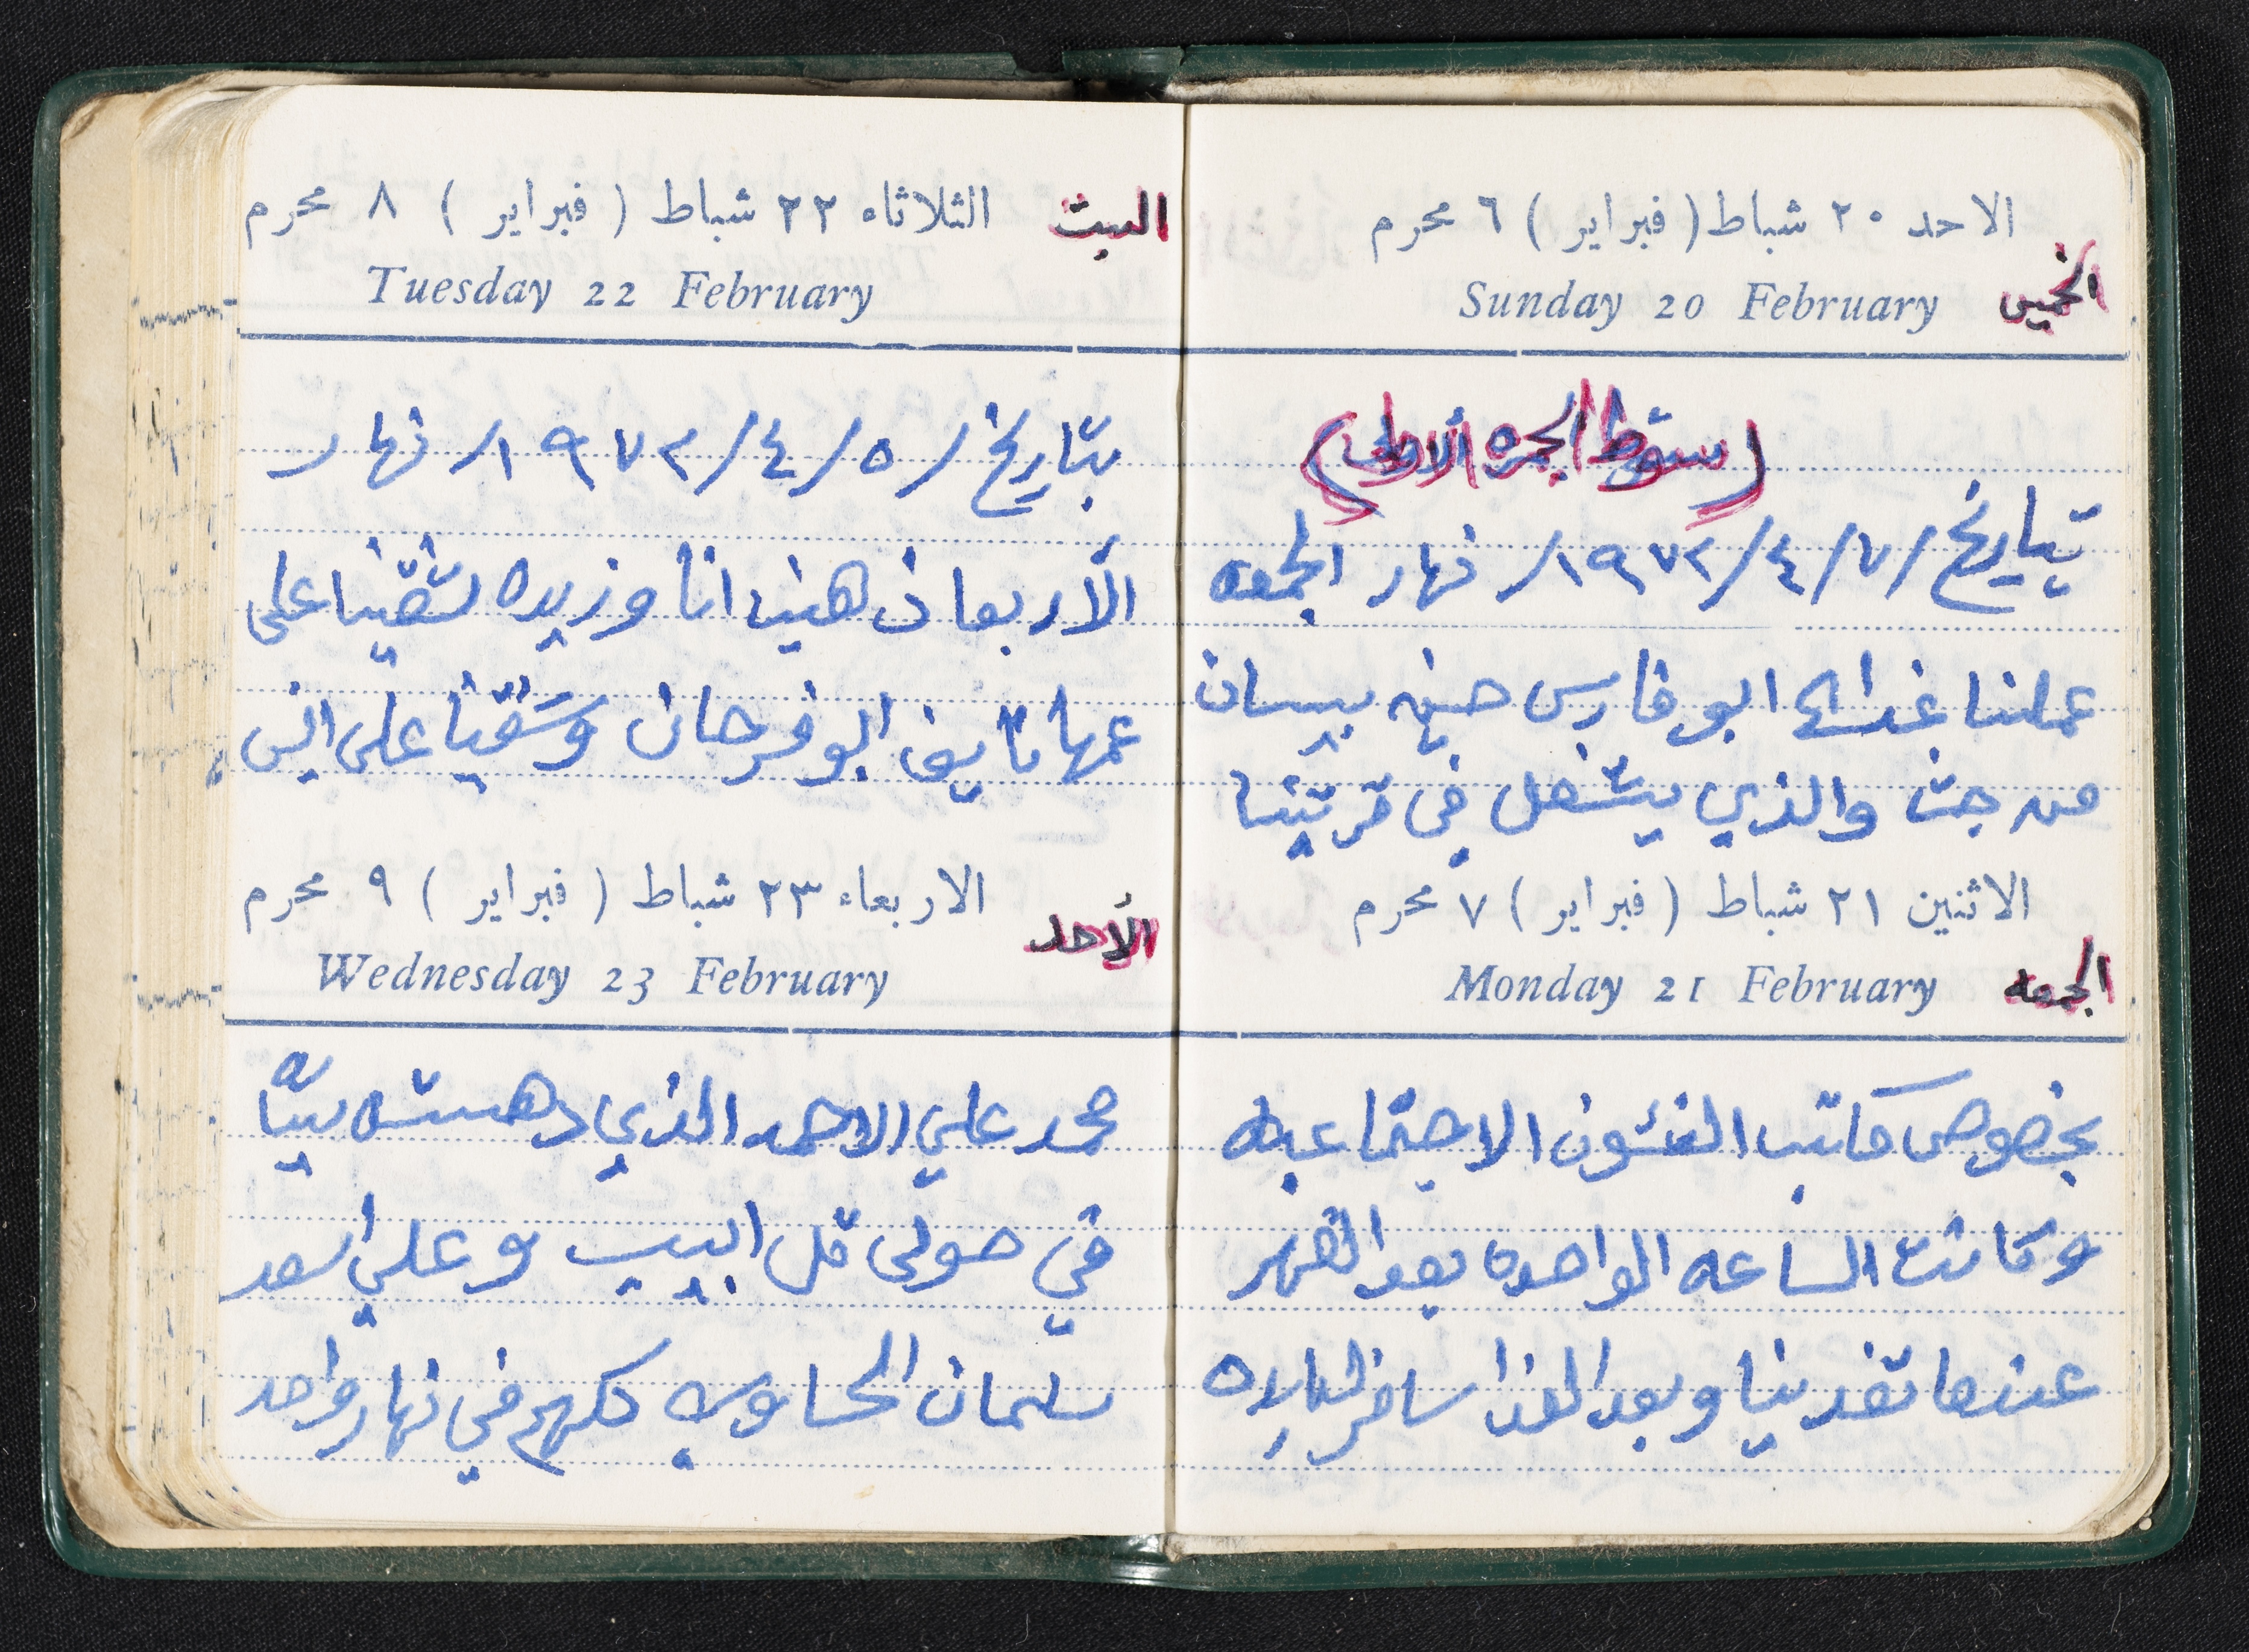 الاحد ٢٠ شباط ( فبراير ) ٦ محرم
الخميس
Sunday 20 February
(سقوط الجمره الاولى)
بتاريخ /٧/٤/١٩٧٢/ نهار الجمعه
عملنا غدا الى ابو فارس صنيه بيسان
من جث والذي يشغل في قريتنا
الاثنين ٢١ شباط ( فبراير ) ٧ محرم
الجمعه
Monday 21 February
بخصوص كاتب الشئون الاجتماعيه
وكانت الساعه الواحده بعد الظهر
عندها تغدينا وبعد الغدا سافر لبلاده
السبت
الثلاثاء ٢٢ شباط ( فبراير ) ٨ محرم
Tuesday 22 February
بتاريخ /٥/٤/١٩٧٢/ نهار
الأربعا ذهبنا انا وزيده شقينا على
عمها نايف ابو فرحان وشقينا على انيس
الاربعاء ٢٣ شباط ( فبراير ) ٩ محرم
الأحد
Wednesday 23 February
محمد علي الاحمد الذي دهسته سيّاره
في حولى تل ابيب وعلي اسعد
سلمان الحساوي كلهم في نهار واحد